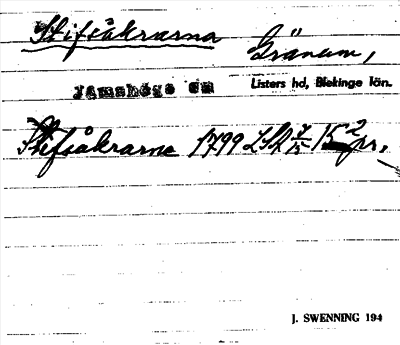 Stifsåkrarna Gränum,
Jämshögs sn Listers hd, Blekinge län.
Stefsåkrarne 1799 LSA
J. SWENNING 194